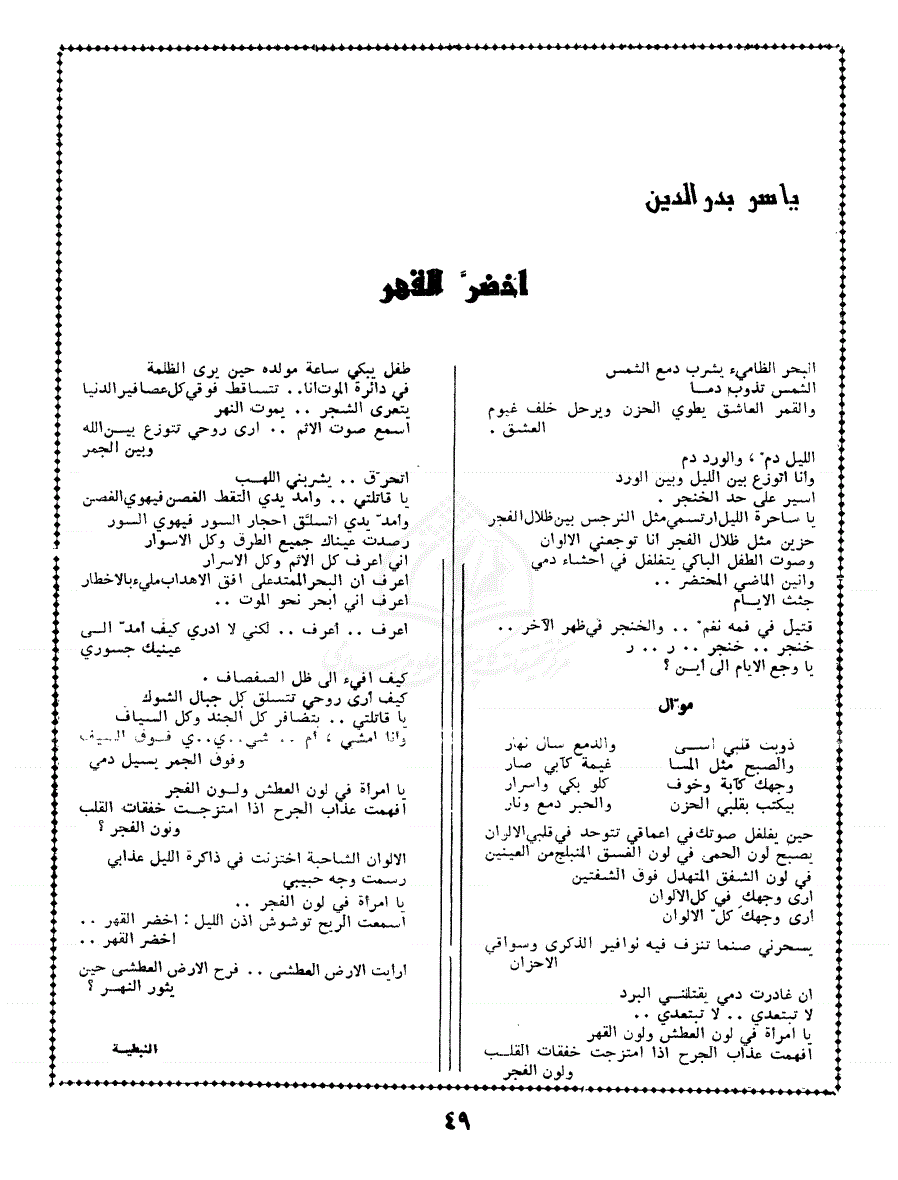 ياسر بدر الدين
اخضرَّ القهر
البحر الظاميء يشرب دمع الشمس
الشمس تذوب دمــا
والقمر العاشق يطوي الحزن ويرحل خلف غيوم
العشق .
الليل دم ، والورد دم
وانا اتوزع بين الليل وبين الورد
اسير على حد الخنجر .
يا ساحرة الليل ارتسمي مثل النرجس بين ظلال الفجر
حزين مثل ظلال الفجر انا توجعني الالوان
وصوت الطفل الباكي يتغلغل في احشاء دمي
وانين الماضي المحتضر ..
جثث الايـــام
قتيل في فمه نغم .. والخنجر في ظهر الآخر ..
خنجر .. خنجر .. ر .. ر
يا وجع الايام الى أيــن ؟
موّال
ذوبت قلبي اســى والدمع سال نهار
والصبح مثل المسا غيمة كآبي صار
وجهك كآبة وخوف كلو بكي واسرار
بيكتب بقلبي الحزن والحبر دمع ونار
حين يغلغل صوتك في اعماقي تتوحد في قلبي الالوان
يصبح لون الحمى في لون الغسق المنبلج من العينين
في لون الشفق المتهدل فوق الشفتين
ارى وجهكِ في كل الالوان
ارى وجهك كلّ الالوان
يسحرني صنما تنزف فيه نوافير الذكرى وسواقي
الاحزان
ان غادرت دمي يقتلنــي البرد
لا تبتعدي .. لا تبتعدي ..
يا امرأة في لون العطش ولون القهر
أفهمت عذاب الجرح اذا امتزجت خفقات القلــب
ولون الفجر
طفل يبكي ساعة مولده حين يرى الظلمة
في دائرة الموت انا .. تتساقط فوقي كل عصافير الدنيا
يتعرى الشجر .. يموت النهر
اسمع صوت الاثم .. ارى روحي تتوزع بيــن الله
وبين الجمر
اتحرّق .. يشربني اللهــب
يا قاتلتي .. وامد يدي التقط الغصن فيهوي الغصن
وامدّ يدي اتسلّق احجار السور فيهوي السور
رصدت عيناك جميع الطرق وكل الاسوار
اني اعرف كل الاثم وكل الاسرار
اعرف ان البحر الممتد على افق الاهداب مليء بالاخطار
اعرف اني ابحر نحو الموت ..
اعرف .. أعرف .. لكني لا ادري كيف أمدّ الــى
عينيك جسوري
كيف افيء الى ظل الصفصاف .
كيف أرى روحي تتسلق كل جبال الشوك
يا قاتلتي .. يتضافر كل الجند وكل السياف
وانا امشي ، أم .. شي..ي..ي فــوق السيف
وفوق الجمر يسيل دمي
يا امرأة في لون العطش ولــون الفجر
أفهمت عذاب الجرح اذا امتزجــت خفقات القلب
ونون الفجر ؟
الالوان الشاحبة اختزنت في ذاكرة الليل عذابي
رسمت وجه حبيبي
يا امرأة في لون الفجر ..
أسمعت الريح توشوش اذن الليل : اخضر القهر ..
اخضر القهر ..
ارايت الارض العطشى .. فرح الارض العطشى حين
يثور النهــر ؟
النبطيــة
٤٩